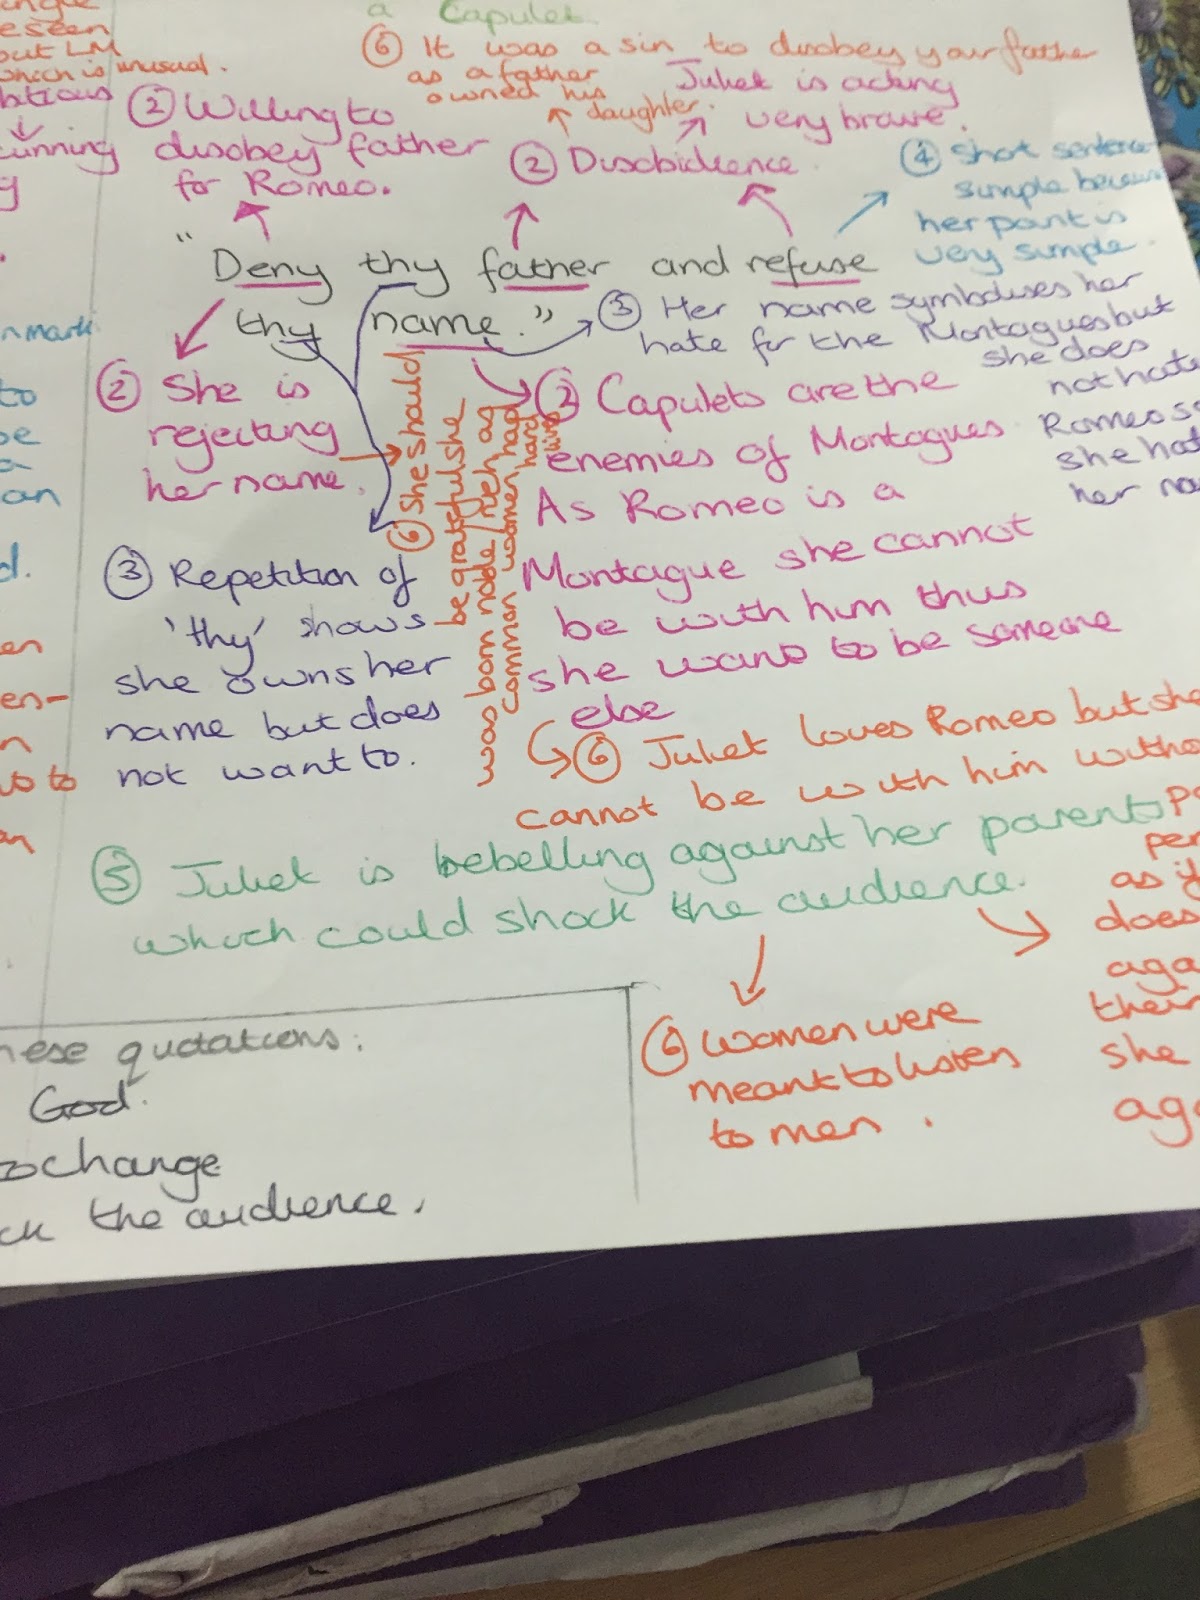 a Capulet.
e seen
but LM
which is unusual.
⑥ It was a sin to disobey your father
as a father
owned his
daughter.
Juliet is acting
very brave.
bitious
cunning
② Willing to
disobey father
for Romeo.
② Disobidience
④ Short sentence
simple because
her point is
very simple.
"Deny thy father and refuse
thy name."
③ Her name symbolises her
hate for the Montagues but
she does
not hate
Romeo so
she hat
her na
② She is
rejecting
her name.
⑥ She should
be grateful she
was born noble/rich as
common women had
hard
lives
② Capulets are the
enemies of Montagues.
As Romeo is a
Montague she cannot
be with him thus
she wans to be someone
else
③ Repetition of
'thy' shows
she owns her
name but does
not want to.
⑥ Juliet loves Romeo but she
cannot be with him witho
⑤ Juliet is bebelling against her parents
which could shock the audience.
per
as if
does
aga
their
she
aga
⑥ Women were
meant to listen
to men.
nmark
to
be
a
an
d.
en
en-
n
to
an
hese quotations:
God.
change
ck the audience.